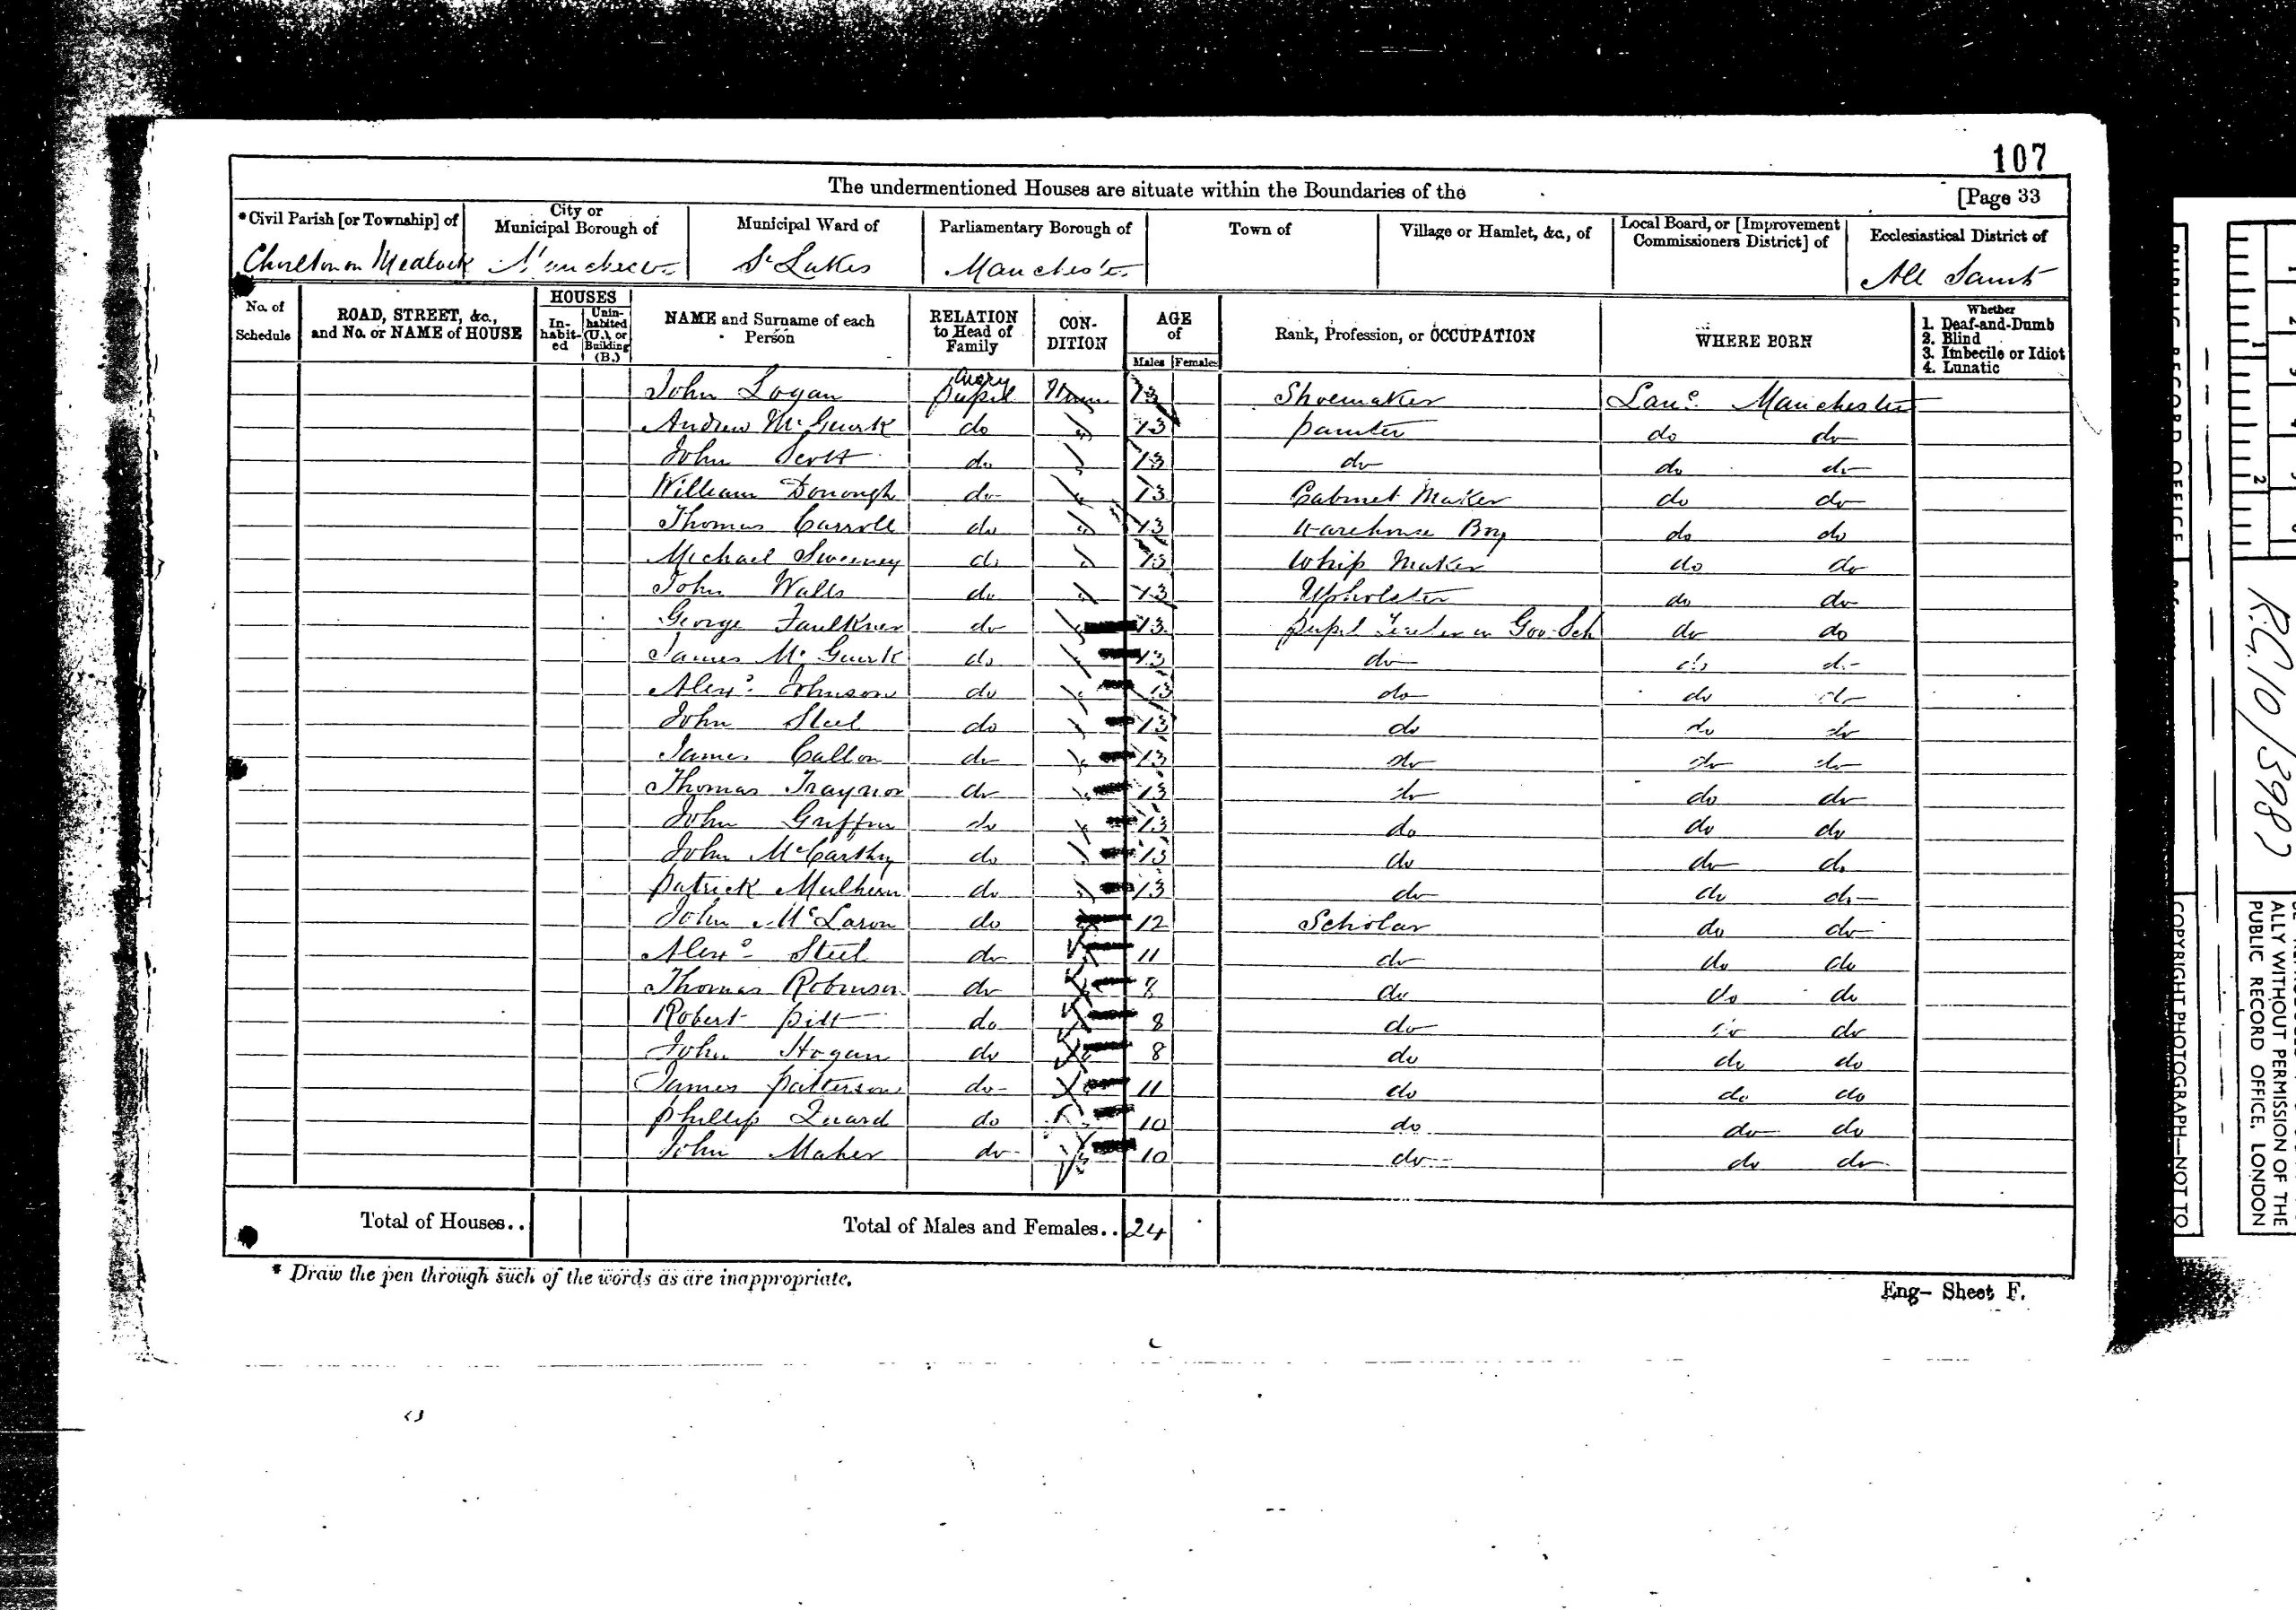 107
The undermentioned Houses are situate within the Boundaries of the [Page 33
*Civil Parish [or Township] of City or Municipal Borough of Municipal Ward of Parliamentary Borough of Town of Village or Hamlet, &c., of Local Board, or [Improvement Commissioners District] of Ecclesiastical District of
Chorlton on Medlock Manchester St Lukes Manchester All Saints
No. of Schedule ROAD, STREET, &c., and No. or NAME of HOUSE HOUSES In-habit-ed Unin-habited (U.), or Building (B.) NAME and Surname of each Person RELATION to Head of Family CON-DITION AGE of Males Females Rank, Profession, or OCCUPATION WHERE BORN Whether 1. Deaf-and-Dumb 2. Blind 3. Imbecile or Idiot 4. Lunatic
John Logan pupil 13 Shoemaker Lanc. Manchester
Andrew McGuirk do 13 painter do do
John Scott do 13 do do do
William Donough do 13 Cabinet Maker do do
Thomas Carroll do 13 Warehouse Boy do do
Michael Sweeney do 13 Whip Maker do do
John Walls do 13 Upholster do do
George Faulkner do 13 pupil Teacher in Gov. Sch do do
James McGuirk do 13 do do do
Alexr. Johnson do 13 do do do
John Steel do 13 do do do
James Callon do 13 do do do
Thomas Traynor do 13 do do do
John Griffin do 13 do do do
John McCarthy do 13 do do do
patrick Mulhern do 13 do do do
John McLaron do 12 Scholar do do
Alexr. Steel do 11 do do do
Thomas Robinson do 8 do do do
Robert pitt do 8 do do do
John Hogan do 8 do do do
James patterson do 11 do do do
phillip Quard do 10 do do do
John Maher do 10 do do do
Total of Houses.. Total of Males and Females.. 24
* Draw the pen through such of the words as are inappropriate.
Eng- Sheet F.
PUBLIC RECORD OFFICE
R.G. 10/3987
COPYRIGHT PHOTOGRAPH—NOT TO
ALLY WITHOUT PERMISSION OF THE
PUBLIC RECORD OFFICE, LONDON